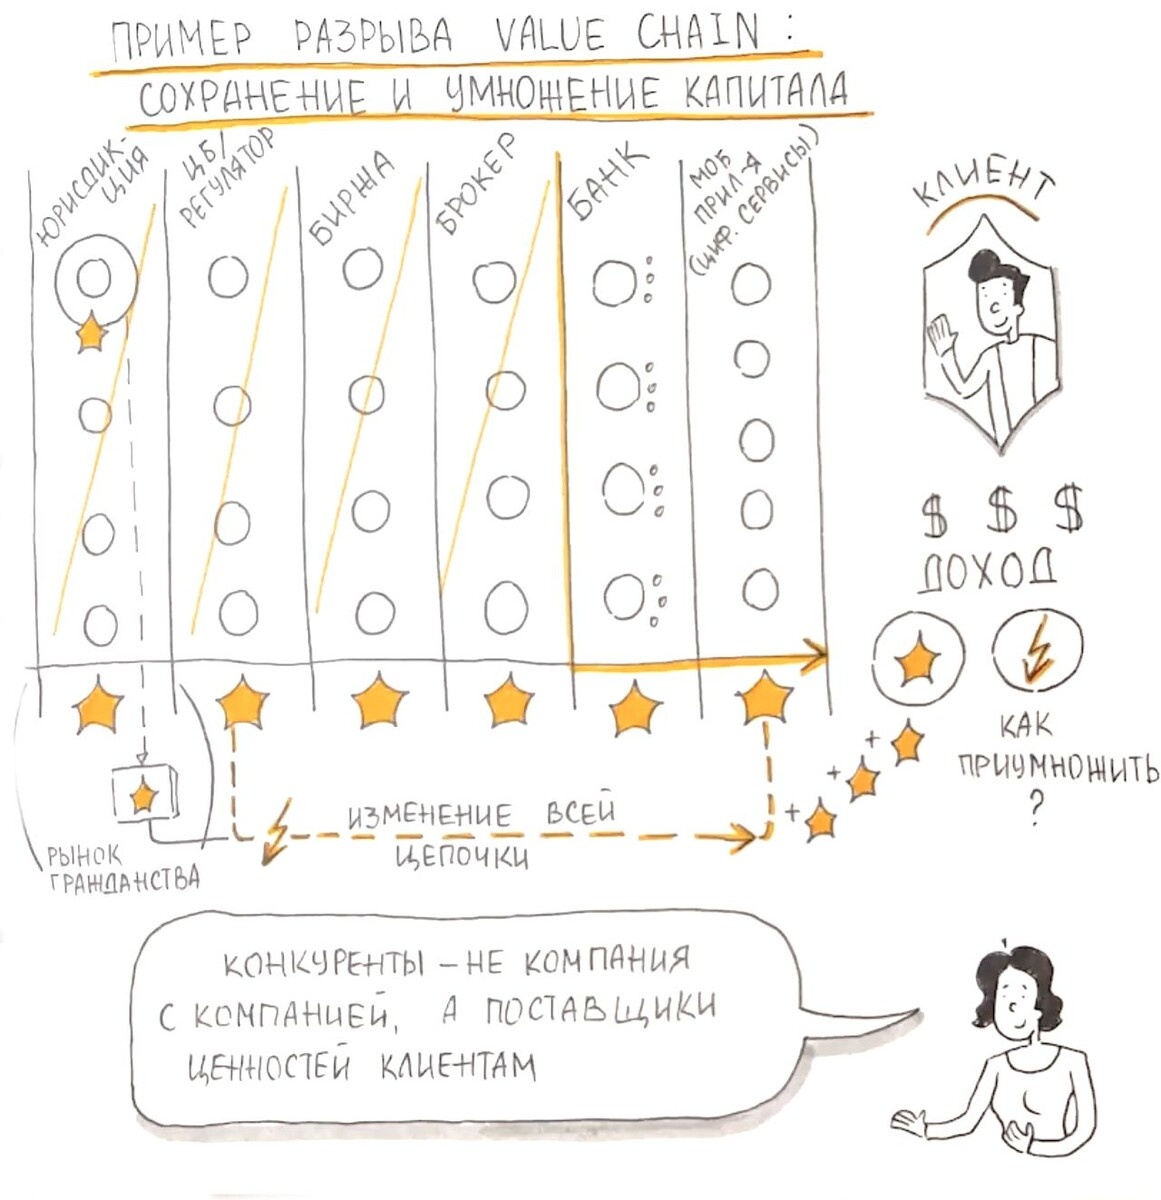 ПРИМЕР РАЗРЫВА VALUE CHAIN:
СОХРАНЕНИЕ И УМНОЖЕНИЕ КАПИТАЛА
ЮРИСДИК-
ЦИЯ
ЦБ/
РЕГУЛЯТОР
БИРЖА
БРОКЕР
БАНК
МОБ
ПРИЛ-Я
(ЦИФ. СЕРВИСЫ)
КЛИЕНТ
$ $ $
ДОХОД
КАК
ПРИУМНОЖИТЬ
?
+
+
+
ИЗМЕНЕНИЕ ВСЕЙ
ЦЕПОЧКИ
РЫНОК
ГРАЖДАНСТВА
КОНКУРЕНТЫ – НЕ КОМПАНИЯ
С КОМПАНИЕЙ, А ПОСТАВЩИКИ
ЦЕННОСТЕЙ КЛИЕНТАМ